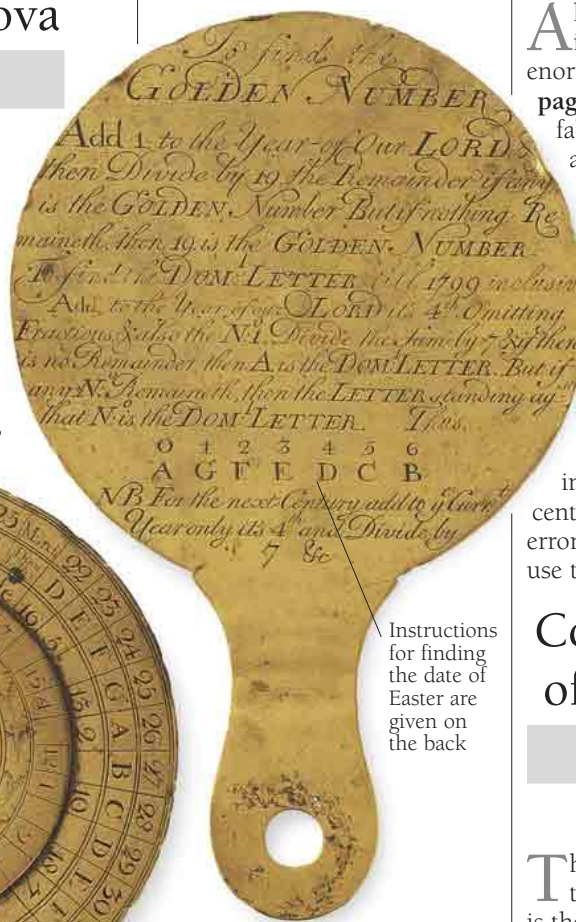 ova
To find the
GOLDEN NUMBER
Add 1 to the Year of Our LORD &
then Divide by 19 the Remainder if any
is the GOLDEN Number But if nothing Re
maineth, then 19 is the GOLDEN NUMBER
To find the DOM.l LETTER till 1799 inclusiv
Add to the Year of our LORD its 4th Omitting
Fractions & also the N 1. Divide the Sum by 7 & if there
is no Remainder then A is the DOM.l LETTER. But if
any No. Remaineth, then the LETTER standing ag
that No. is the DOM.l LETTER. Thus.
0 1 2 3 4 5 6
A G F E D C B
NB. For the next Century add to ye Curr.t
Year only its 4th and Divide by
7 &c
Instructions
for finding
the date of
Easter are
given on
the back
22 23 24 25 26 27 28 29 30
D E F G A B C D E F
A
enor
pag
fa
a
in
cent
error
use t
Co
of
Th
t
is the